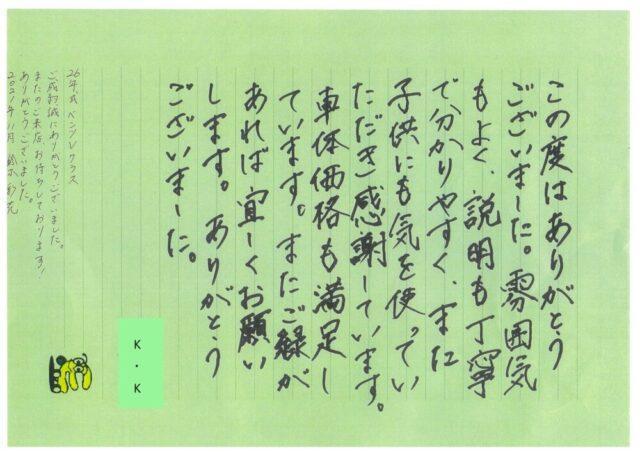 この度はありがとう
ございました。雰囲気
もよく、説明も丁寧
で分かりやすく、また
子供にも気を使ってい
ただき感謝しています。
車体価格も満足し
ています。またご縁が
あれば宜しくお願い
します。ありがとう
ございました。
K・K
26年式 ベンツ Vクラス
ご成約誠にありがとうございました。
またのご来店、お待ちしております!
ありがとうございました。
2021年11月 鈴木